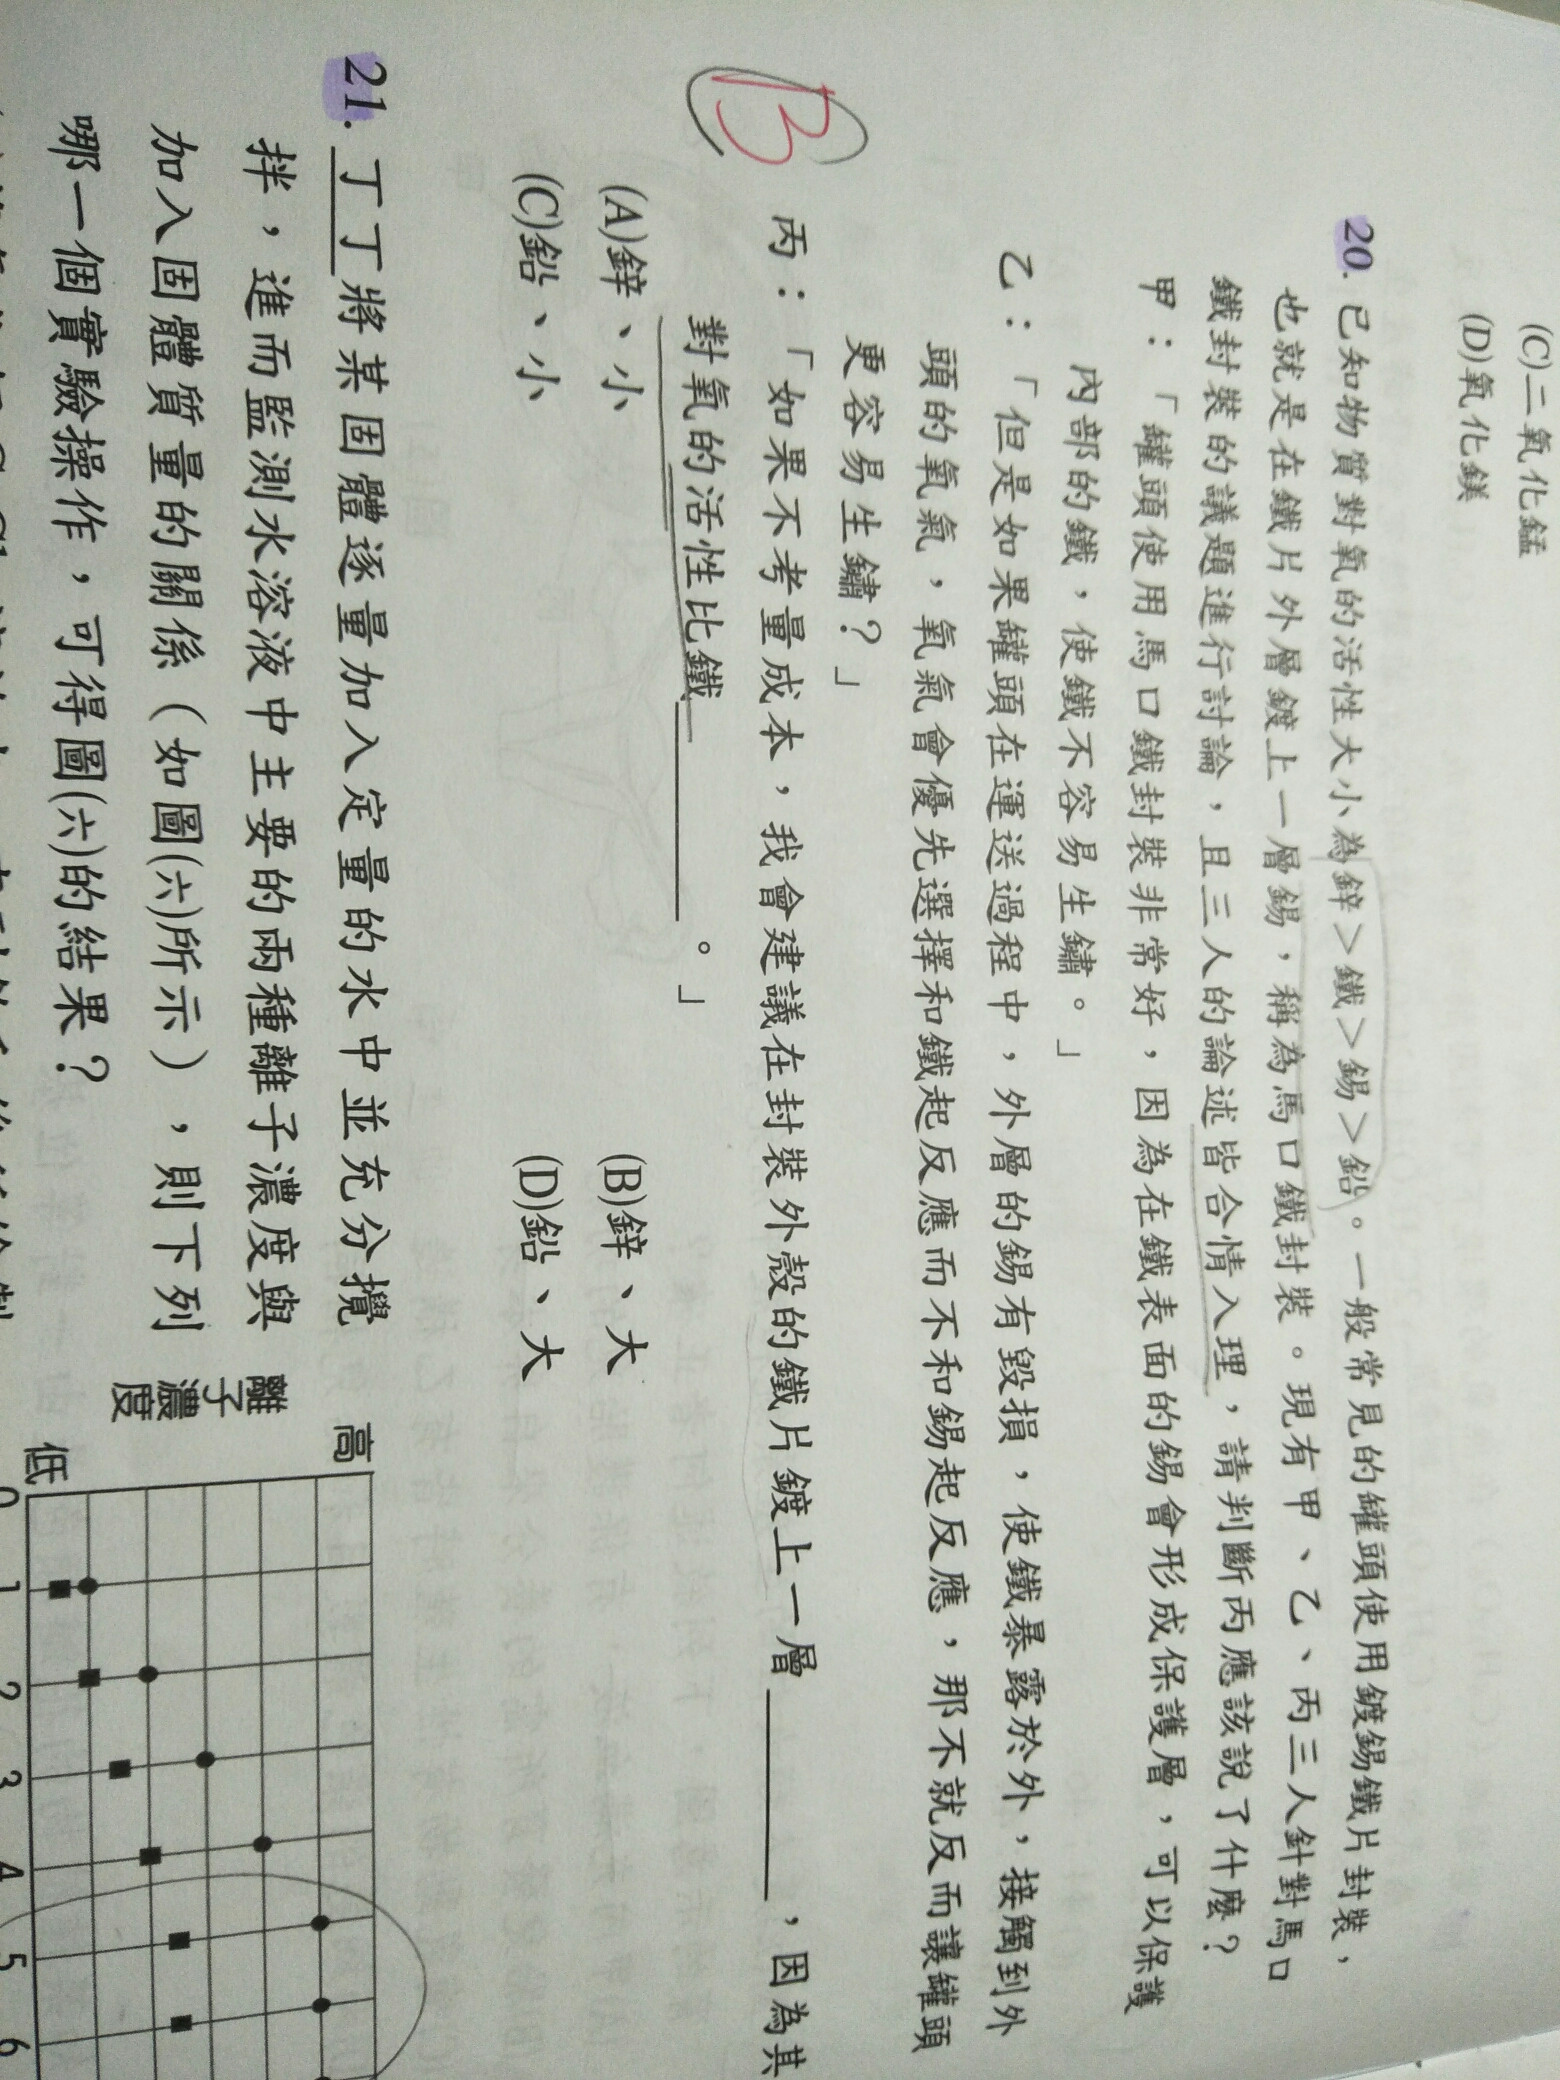 (C)二氧化錳
(D)氧化鎂
20. 已知物質對氧的活性大小為鋅＞鐵＞錫＞鉛。一般常見的罐頭使用鍍錫鐵片封裝，
也就是在鐵片外層鍍上一層錫，稱為馬口鐵封裝。現有甲、乙、丙三人針對馬口
鐵封裝的議題進行討論，且三人的論述皆合情入理，請判斷丙應該說了什麼？
甲：「罐頭使用馬口鐵封裝非常好，因為在鐵表面的錫會形成保護層，可以保護
內部的鐵，使鐵不容易生鏽。」
乙：「但是如果罐頭在運送過程中，外層的錫有毀損，使鐵暴露於外，接觸到外
頭的氧氣，氧氣會優先選擇和鐵起反應而不和錫起反應，那不就反而讓罐頭
更容易生鏽？」
B
丙：「如果不考量成本，我會建議在封裝外殼的鐵片鍍上一層＿＿＿＿，因為其
對氧的活性比鐵＿＿＿＿。」
(A)鋅、小 (B)鋅、大
(C)鉛、小 (D)鉛、大
21. 丁丁將某固體逐量加入定量的水中並充分攪
拌，進而監測水溶液中主要的兩種離子濃度與
加入固體質量的關係（如圖(六)所示），則下列
哪一個實驗操作，可得圖(六)的結果？
高
離子濃度
低
0 1 2 3 4 5 6